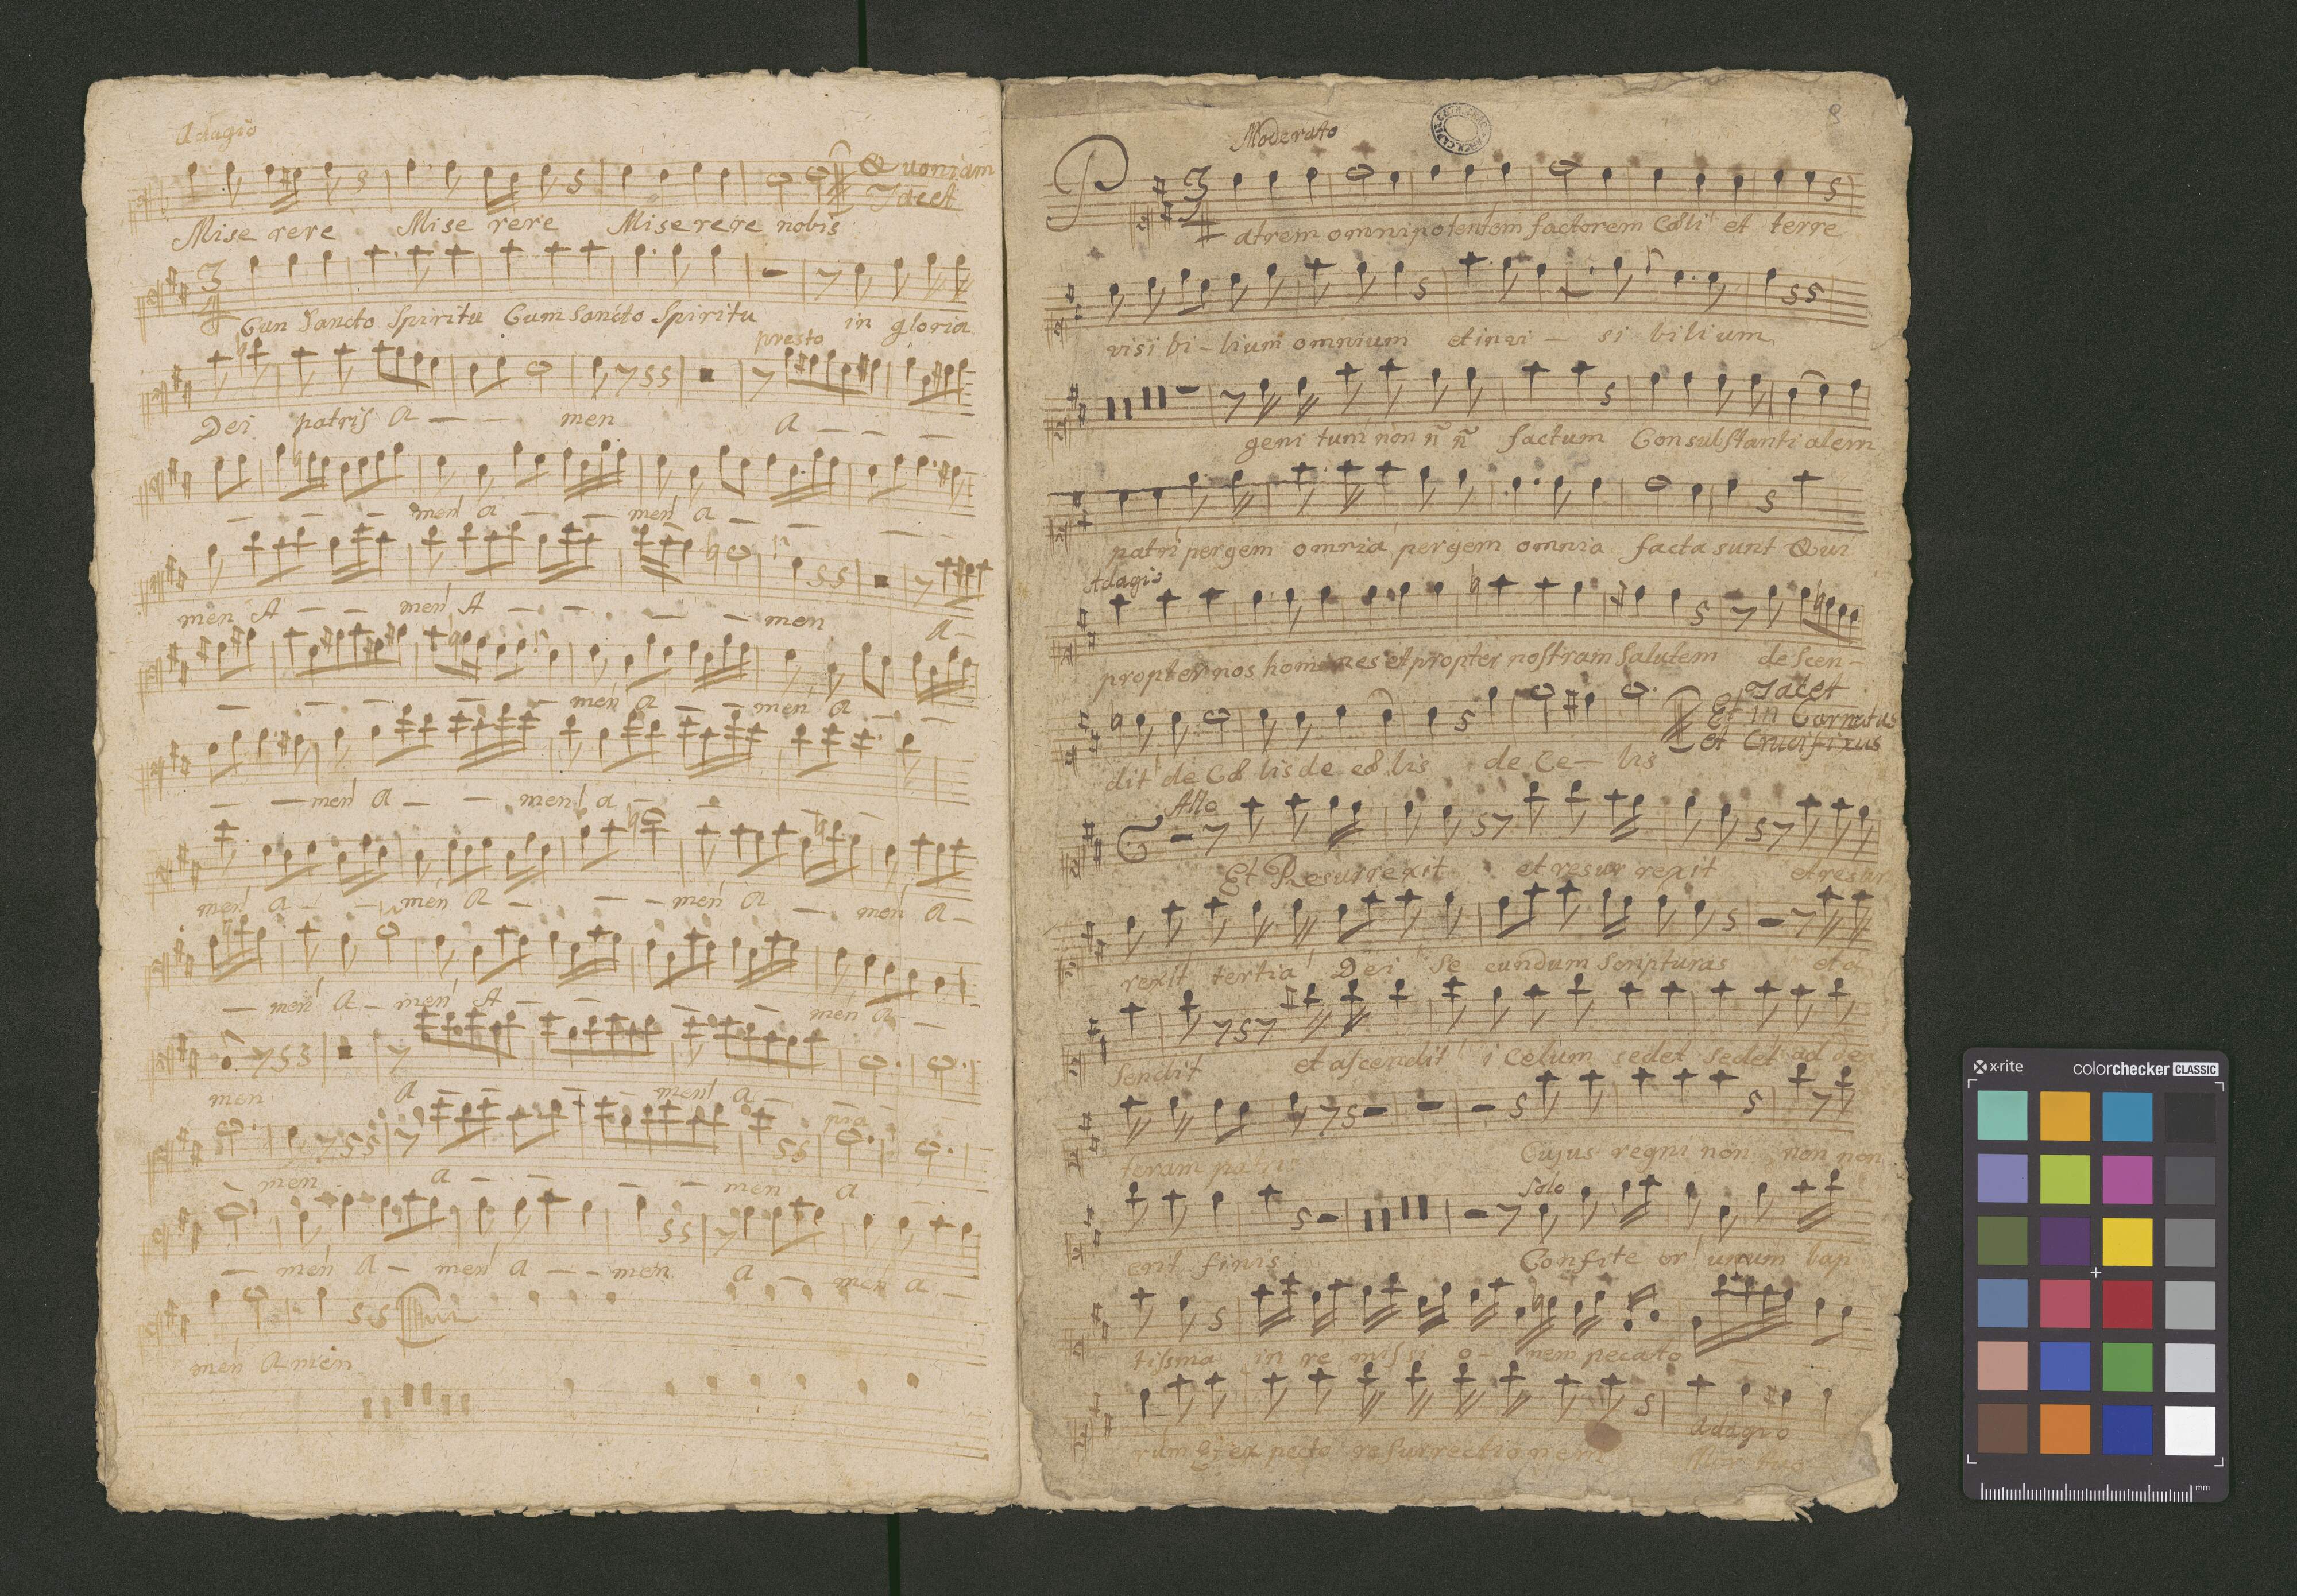 Adagio
Quoniam
Tacet
Mise rere Mise rere Miserere nobis
3
4
Cun Sancto Spiritu Cum Sancto Spiritu in gloria
presto
Dei patris A — — men A — — —
— — — men A — — men A — —
men A — — men A — — — — men A —
— — — — — men A — — men A — —
— — men A — — men A — — —
men A — — men A — — — men A — men A —
— men A — men A — — — — men A —
men A — — — — men A —
pia
— men A — — — — men A —
— men A — men A — — men A — men A —
men Amen
Moderato
8
3
4
Patrem omnipotentem factorem Cœli et terre
visi bi — lium omnium et invi — si bilium
geni tum non ñ ñ factum Consubstanti alem
patri pergem omnia pergem omnia facta sunt Qui
Adagio
propter nos homines et propter nostram Salutem de Scen —
Tacet
Et in Carnatus
et Crucifixus
dit de Cœ lis de cœ lis de Ce — lis
Allo
Et Resurrexit et resur rexit et resur
rexit tertia Dei Se cundum Scripturas et a
Sendit et ascendit i Celum sedet sedet ad dex
teram patris Cujus regni non non non
Solo
erit finis Confite or unum bap
tissma in re missi o — nem pecato — —
rum Et ex pecto resurrectionem
Adagio
x-rite
colorchecker CLASSIC
mm